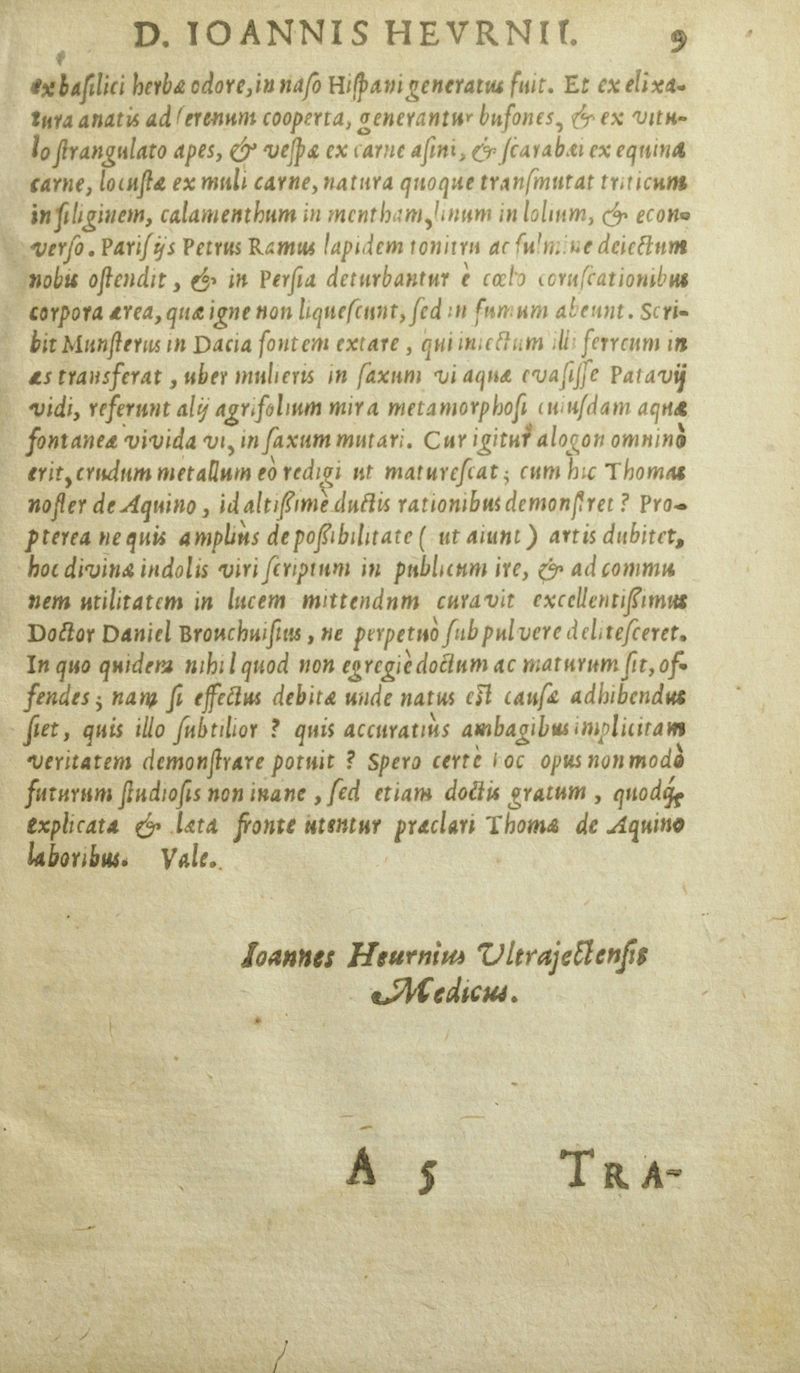 D. IOANNIS HEVRNII. 9
ex basilici herbæ odore, in naso Hispani generatus fuit. Et ex elixa-
tura anatis ad serenum cooperta, generantur bufones, & ex vitu-
lo strangulato apes, & vespæ ex carne asini, & scarabæi ex equina
carne, locustæ ex muli carne, natura quoque transmutat triticum
in siliginem, calamenthum in mentham, linum in lolium, & econ-
verso. Parisijs Petrus Ramus lapidem tonitru ac fulmine deiectum
nobis ostendit, & in Persia deturbantur è cœlo coruscationibus
corpora ærea, quæ igne non liquescunt, sed in fumum abeunt. Scri-
bit Munsterus in Dacia fontem extare, qui iniectum illi ferreum in
æs transferat, uber mulieris in saxum vi aquæ evasisse Patavij
vidi, referunt alij agrifolium mira metamorphosi cuiusdam aquæ
fontaneæ vivida vi, in saxum mutari. Cur igitur alogon omninò
erit, crudum metallum eò redigi ut maturescat; cum hic Thomas
noster de Aquino, id altissimè ductis rationibus demonstret? Pro-
pterea ne quis amplius de possibilitate ( ut aiunt ) artis dubitet,
hoc divinæ indolis viri scriptum in publicum ire, & ad commu
nem utilitatem in lucem mittendnm curavit excellentissimus
Doctor Daniel Brouchuisius, ne perpetuò sub pulvere delitesceret.
In quo quidem nihil quod non egregiè doctum ac maturum sit, of-
fendes; nam si effectus debitæ unde natus est causæ adhibendus
siet, quis illo subtilior ? quis accuratiùs ambagibus implicitam
veritatem demonstrare potuit ? Spero certè hoc opus non modò
futurum studiosis non inane, sed etiam doctis gratum, quodq́ꝫ
explicata & læta fronte utentur præclari Thomæ de Aquino
laboribus. Vale.
Ioannes Heurnius Vltrajectensis
Medicus.
A 5 TRA-